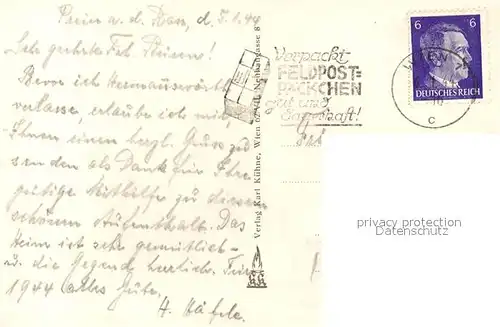 a. d. d. 7.1.44
Sehr geehrtes Frl.
Bevor ich
verlasse, erlaube ich mir,
Ihnen einen herzl. Gruss zu
senden als Dank für Ihre
gütige Mithilfe zu diesem
schönen Aufenthalt. Das
Heim ist sehr gemütlich
u. die Gegend herrlich. Für
1944 alles Gute,
H.
Verlag Karl Kühne, Wien 62 VII,
Verpackt
FELDPOST=
PÄCKCHEN
gut und
dauerhaft!
6 6
DEUTSCHES REICH
WIEN
c
privacy protection
Datenschutz